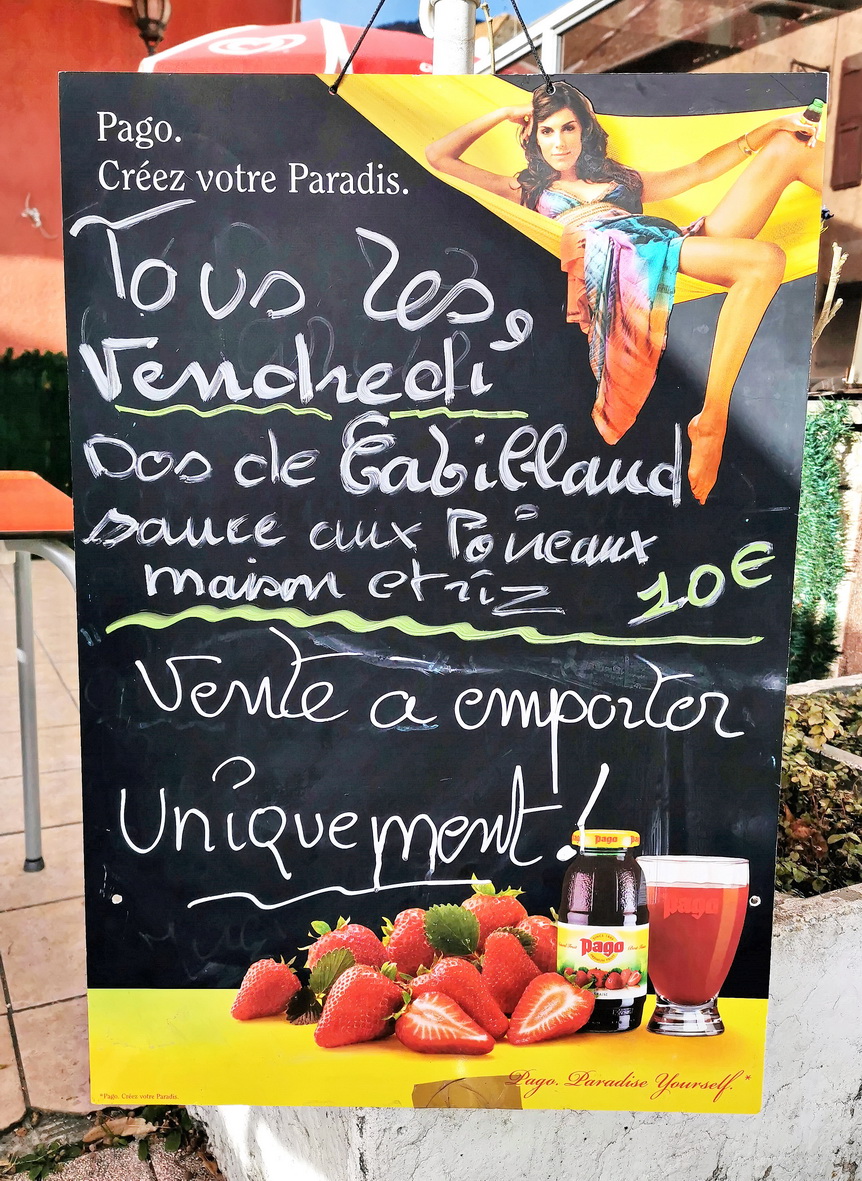 Pago.
Créez votre Paradis.
Tous les
Vendredi
Dos de Cabillaud
sauce aux Poireaux
maison et riz 10€
Vente a emporter
Uniquement!
pago
pago
pago
Pago. Paradise Yourself.*
*Pago. Créez votre Paradis.